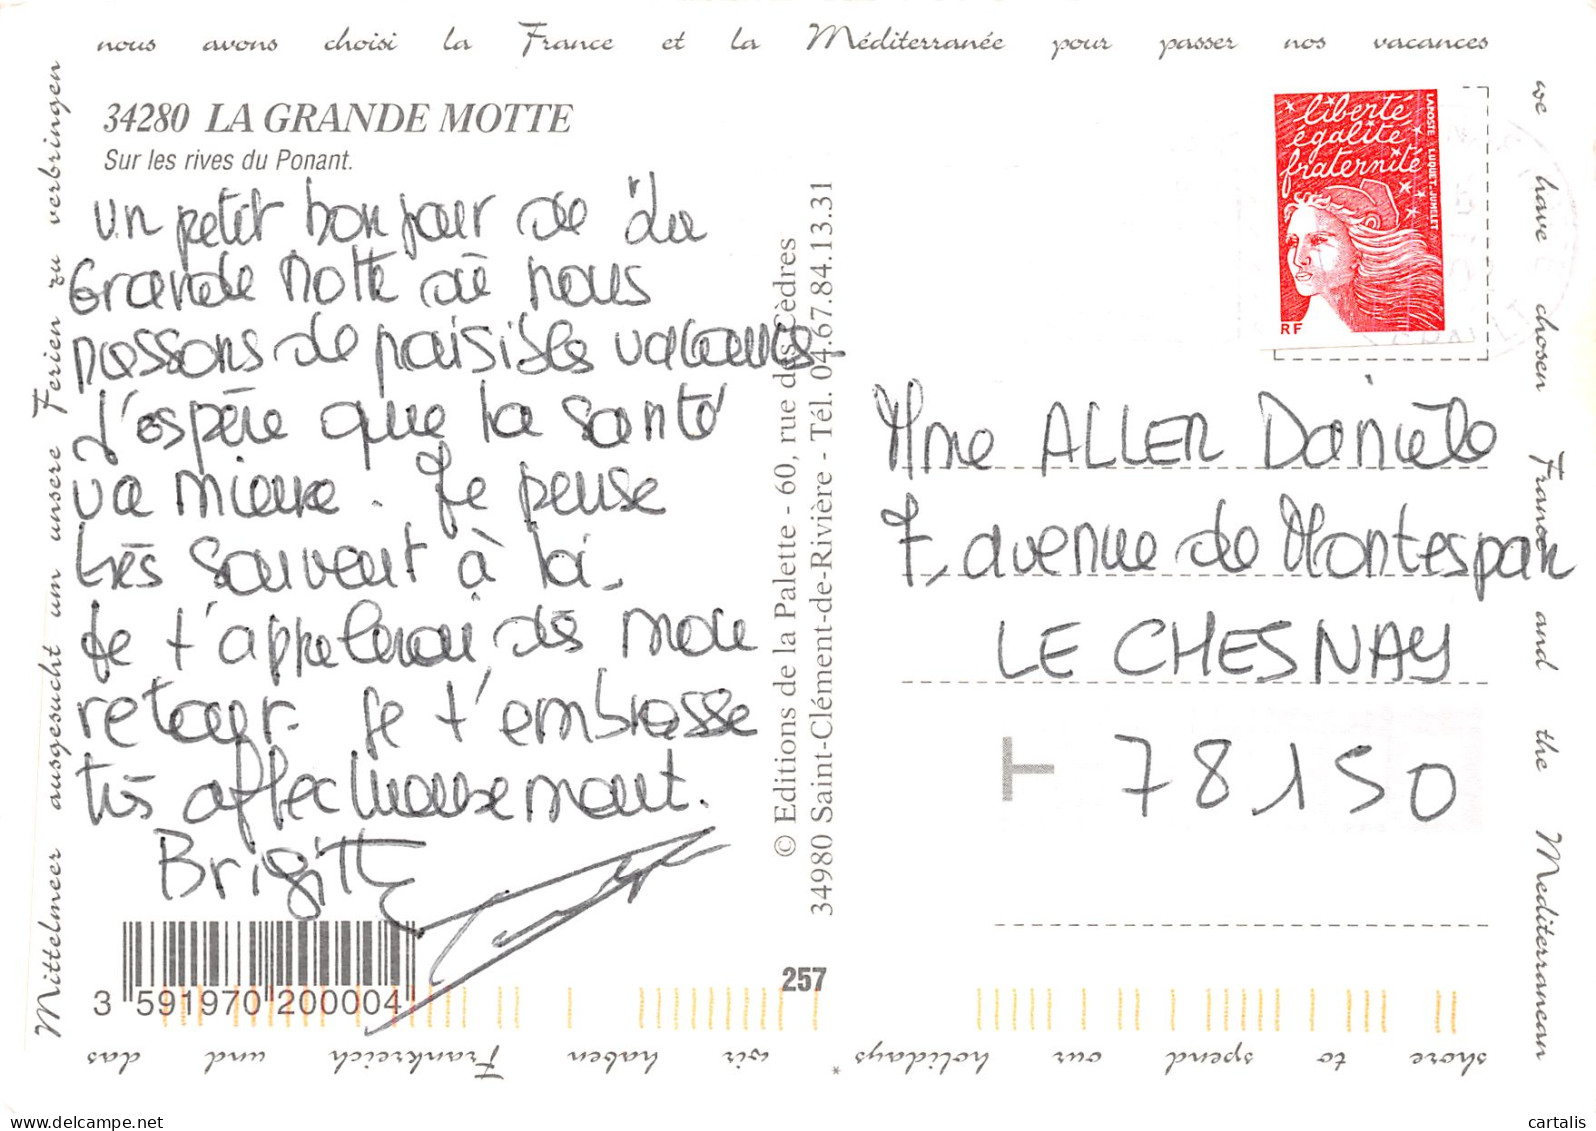 nous avons choisi la France et la Méditerranée pour passer nos vacances
34280 LA GRANDE MOTTE
Sur les rives du Ponant.
un petit bonjour de "La
Grande Motte où nous
passons de paisibles vacances
J'espère que ta santé
va mieux. Je pense
très souvent à toi.
Je t'appellerai dès mon
retour. Je t'embrasse
très affectueusement.
Brigitte
3 591970 200004
© Editions de la Palette - 60, rue des Cèdres
34980 Saint-Clément-de-Rivière - Tél. 04.67.84.13.31
257
liberté
égalité
fraternité
LAPOSTE LUQUET-JUMELET
RF
Mme ALLER Danièle
7, avenue de Montespan
LE CHESNAY
T 78150
we have chosen France and the Mediterranean
shore to spend our holidays *
wir haben Frankreich und das
Mittelmeer ausgesucht um unsere Ferien zu verbringen